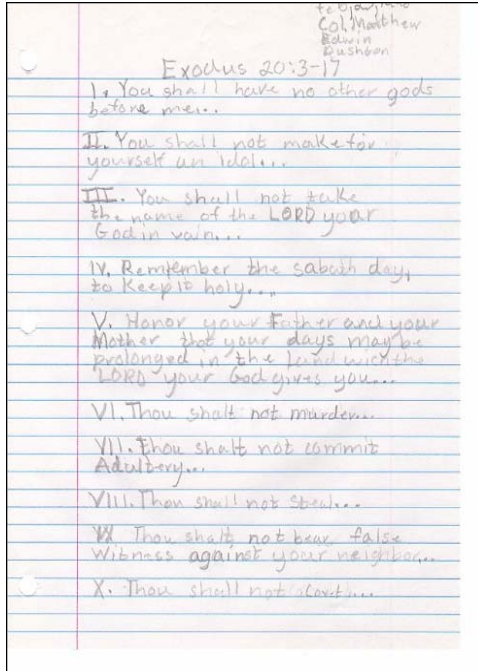 Col. Matthew
Edwin
Dushban
Exodus 20:3-17
I. You shall have no other gods
before me...
II. You shall not make for
yourself an idol...
III. You shall not take
the name of the LORD your
God in vain...
IV. Remember the sabath day,
to Keep it holy...
V. Honor your Father and your
Mother that your days may be
prolonged in the land wich the
LORD your God gives you...
VI. Thou shalt not murder...
VII. Thou shalt not commit
Adultery...
VIII. Thou shall not steal...
IX. Thou shalt not bear false
Witness against your neighbor...
X. Thou shall not covet...